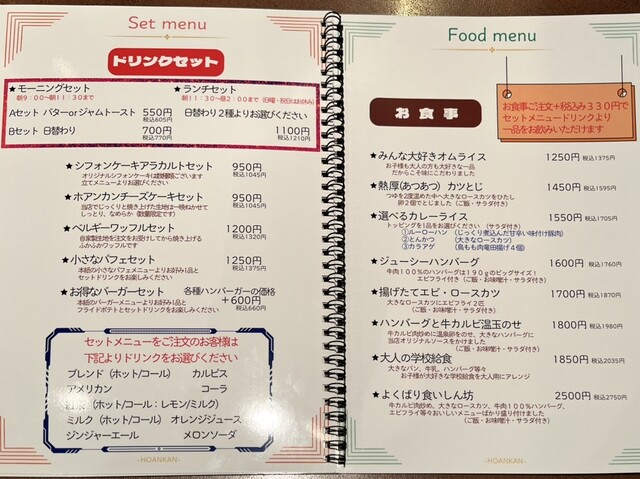 Set menu
ドリンクセット
★モーニングセット
朝9:00~朝11:30まで
Aセット バターorジャムトースト 550円
税込605円
Bセット 日替わり 700円
税込770円
★ランチセット
朝11:30~昼2:00まで(日曜・祝日はお休み)
日替わり2種よりお選びください
1100円
税込1210円
★シフォンケーキアラカルトセット 950円
税込1045円
オリジナルシフォンケーキは数種類ございます
立てメニューよりお選びください
★ホアンカンチーズケーキセット 950円
税込1045円
当店でじっくりと焼き上げた生地は一晩ねかせて
しっとり、なめらか(数量限定です)
★ベルギーワッフルセット 1200円
税込1320円
自家製生地を注文をお受けしてから焼き上げる
ふかふかワッフルです
★小さなパフェセット 1250円
税込1375円
本紙の小さなパフェメニューよりお好み1品と
セットドリンクをお楽しみください
★お得なバーガーセット 各種ハンバーガーの価格
+600円
税込660円
本紙のバーガーメニューよりお好み1品と
フライドポテトとセットドリンクをお楽しみください
セットメニューをご注文のお客様は
下記よりドリンクをお選びください
ブレンド(ホット/コール) カルピス
アメリカン コーラ
紅茶(ホット/コール:レモン/ミルク)
ミルク(ホット/コール) オレンジジュース
ジンジャーエール メロンソーダ
-HOANKAN-
Food menu
お食事
お食事ご注文+税込み330円で
セットメニュードリンクより
一品をお飲みいただけます
★みんな大好きオムライス 1250円 税込1375円
お子様も大人の方も大好きな一品
だからこそ味にこだわりました
★熱厚(あつあつ) カツとじ 1450円 税込1595円
つゆを2度温めた中へ大きなロースカツをひたし
卵2個でとじました(ご飯・お味噌汁・サラダ付き)
★選べるカレーライス 1550円 税込1705円
トッピングを1品をお選びください (サラダ付き)
①ルーローハン (じっくり煮込んだ甘辛い味付け豚肉)
②とんかつ (大きなロースカツ)
③カラアゲ (鳥もも肉竜田揚げ4個)
★ジューシーハンバーグ 1600円 税込1760円
牛肉100%のハンバーグは190gのビッグサイズ!
エビフライ付き(ご飯・お味噌汁・サラダ付き)
★揚げたてエビ・ロースカツ 1700円 税込1870円
大きなロースカツにエビフライ2匹
(ご飯・お味噌汁・サラダ付き)
★ハンバーグと牛カルビ温玉のせ 1800円 税込1980円
牛カルビ肉炒めに温泉卵をのせ、大きなハンバーグに
当店オリジナルソースをかけました
(ご飯・お味噌汁・サラダ付き)
★大人の学校給食 1850円 税込2035円
大きなパン、牛乳、ハンバーグ等々
お子様が大好きな学校給食を大人用にアレンジ
★よくばり食いしん坊 2500円 税込2750円
牛カルビ肉炒め、大きなロースカツ、牛肉100%ハンバーグ、
エビフライ等々おいしいメニューばかり盛り付けました
(ご飯・お味噌汁・サラダ付き)
-HOANKAN-